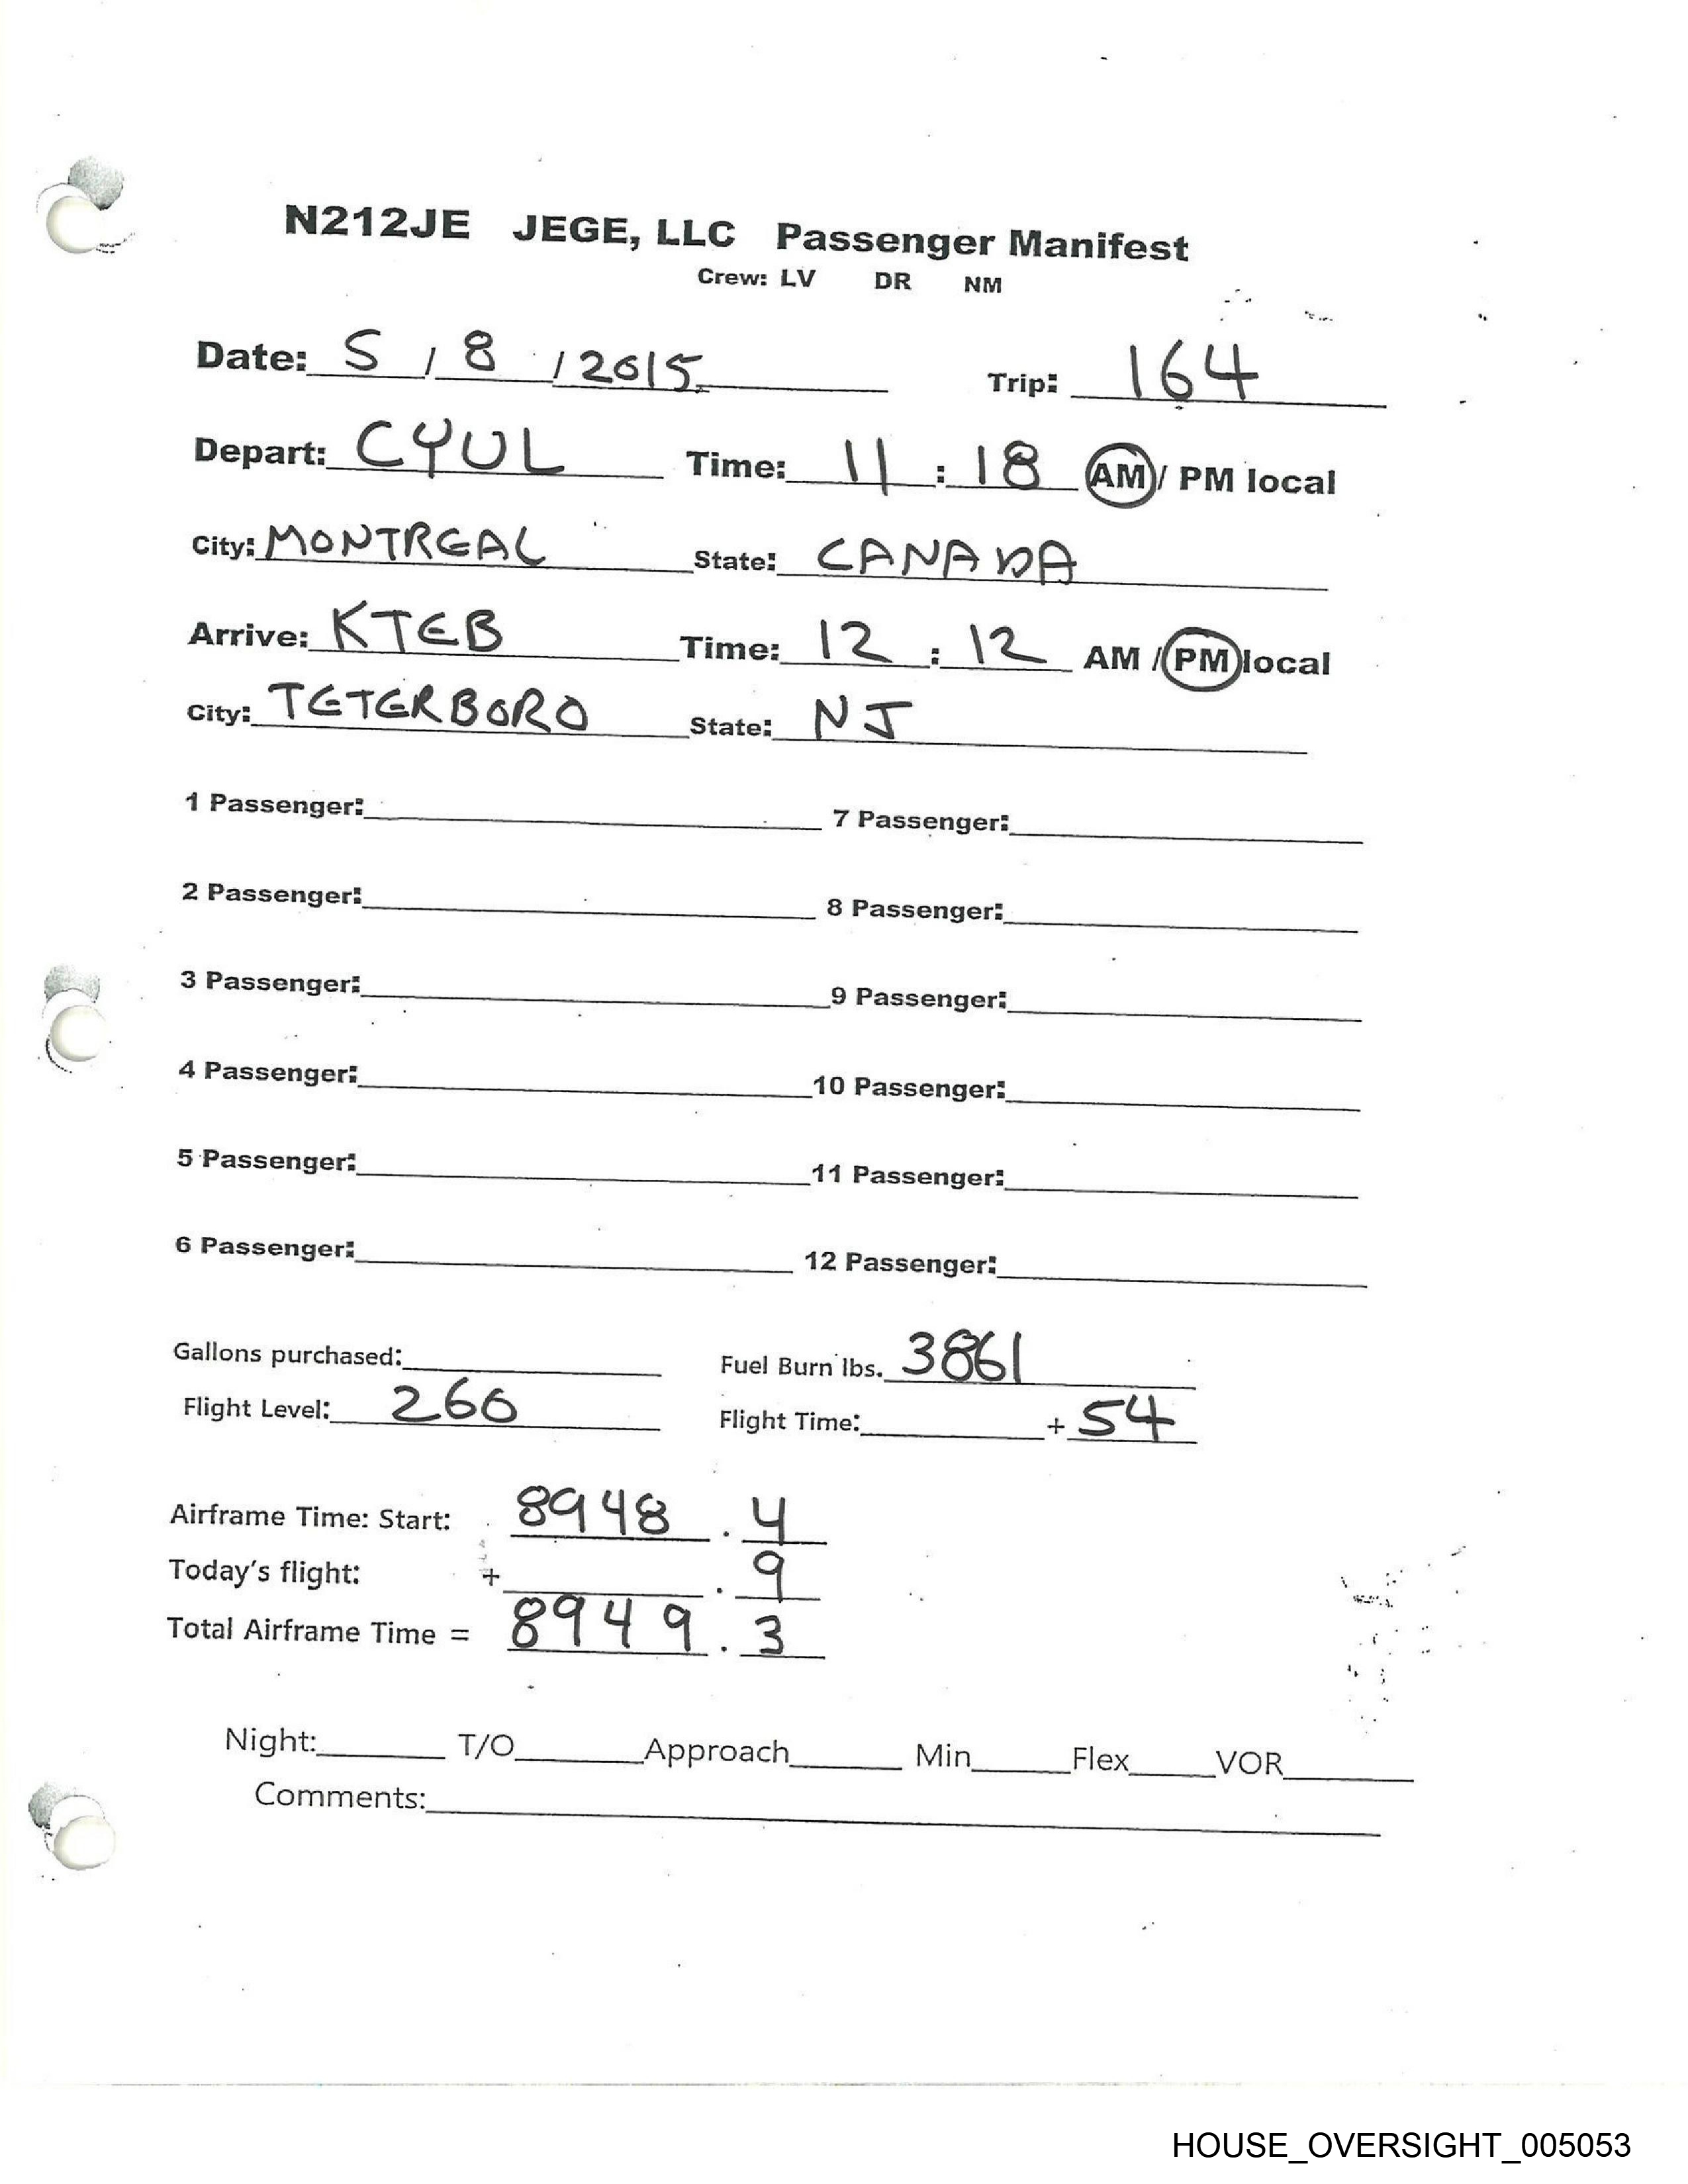 N212JE JEGE, LLC Passenger Manifest
Crew: LV DR NM
Date: 5 / 8 / 2015 Trip: 164
Depart: CYUL Time: 11 : 18 AM / PM local
City: MONTREAL State: CANADA
Arrive: KTEB Time: 12 : 12 AM / PM local
City: TETERBORO State: NJ
1 Passenger: 7 Passenger:
2 Passenger: 8 Passenger:
3 Passenger: 9 Passenger:
4 Passenger: 10 Passenger:
5 Passenger: 11 Passenger:
6 Passenger: 12 Passenger:
Gallons purchased: Fuel Burn lbs. 3861
Flight Level: 260 Flight Time: + 54
Airframe Time: Start: 8948 . 4
Today's flight: + . 9
Total Airframe Time = 8949 . 3
Night: T/O Approach Min Flex VOR
Comments:
HOUSE_OVERSIGHT_005053